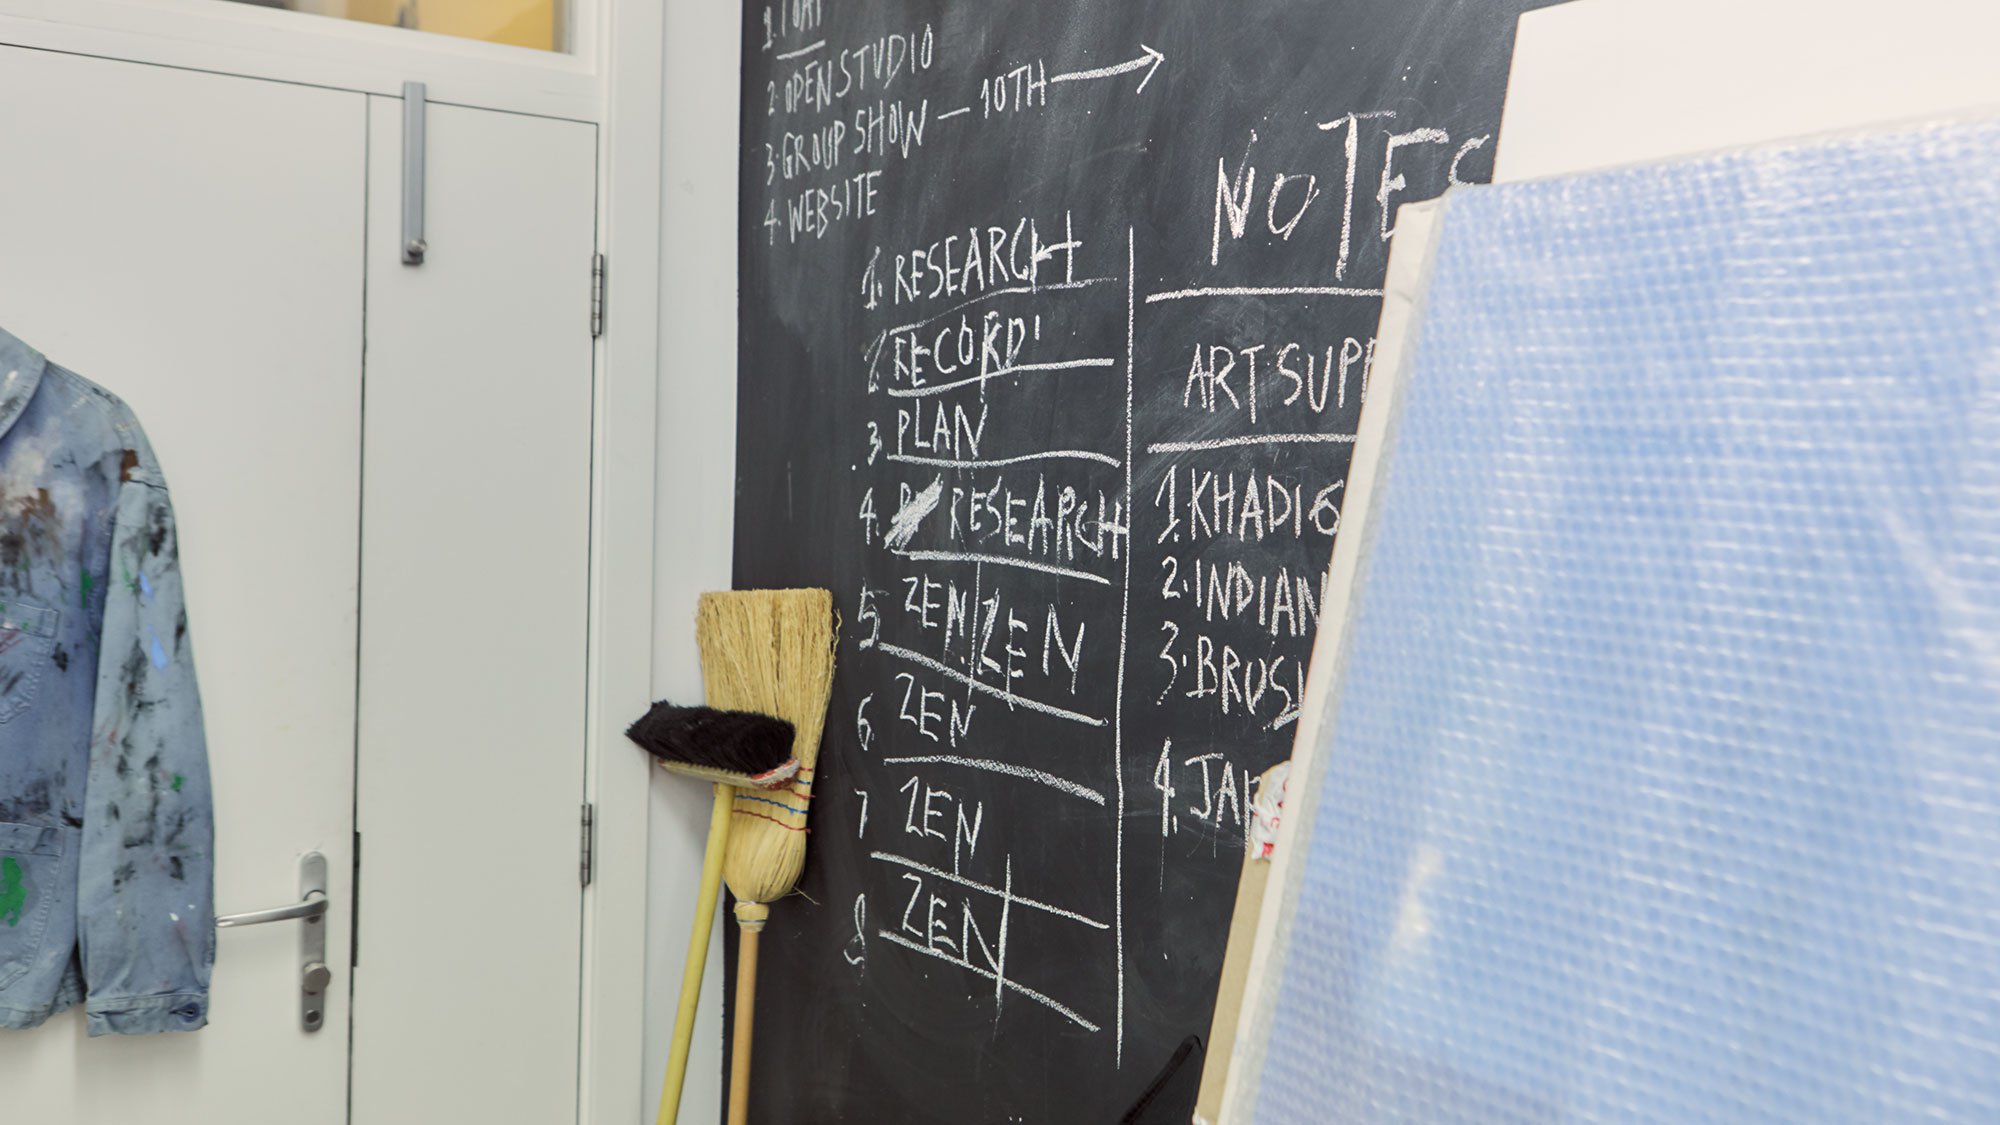 2. OPEN STUDIO
3. GROUP SHOW — 10TH →
4. WEBSITE
1. RESEARCH
2. RECORD
3. PLAN
4. RESEARCH
5 ZEN ZEN
6 ZEN
7 ZEN
8 ZEN
NOTES
ART SUPP
1. KHADI
2. INDIAN
3. BRUSH
4. JAP